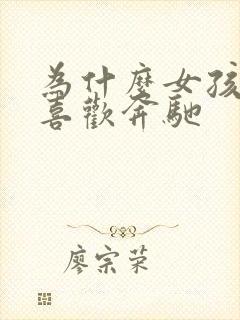 為什麼女孩
喜歡奔馳
廖宗荣